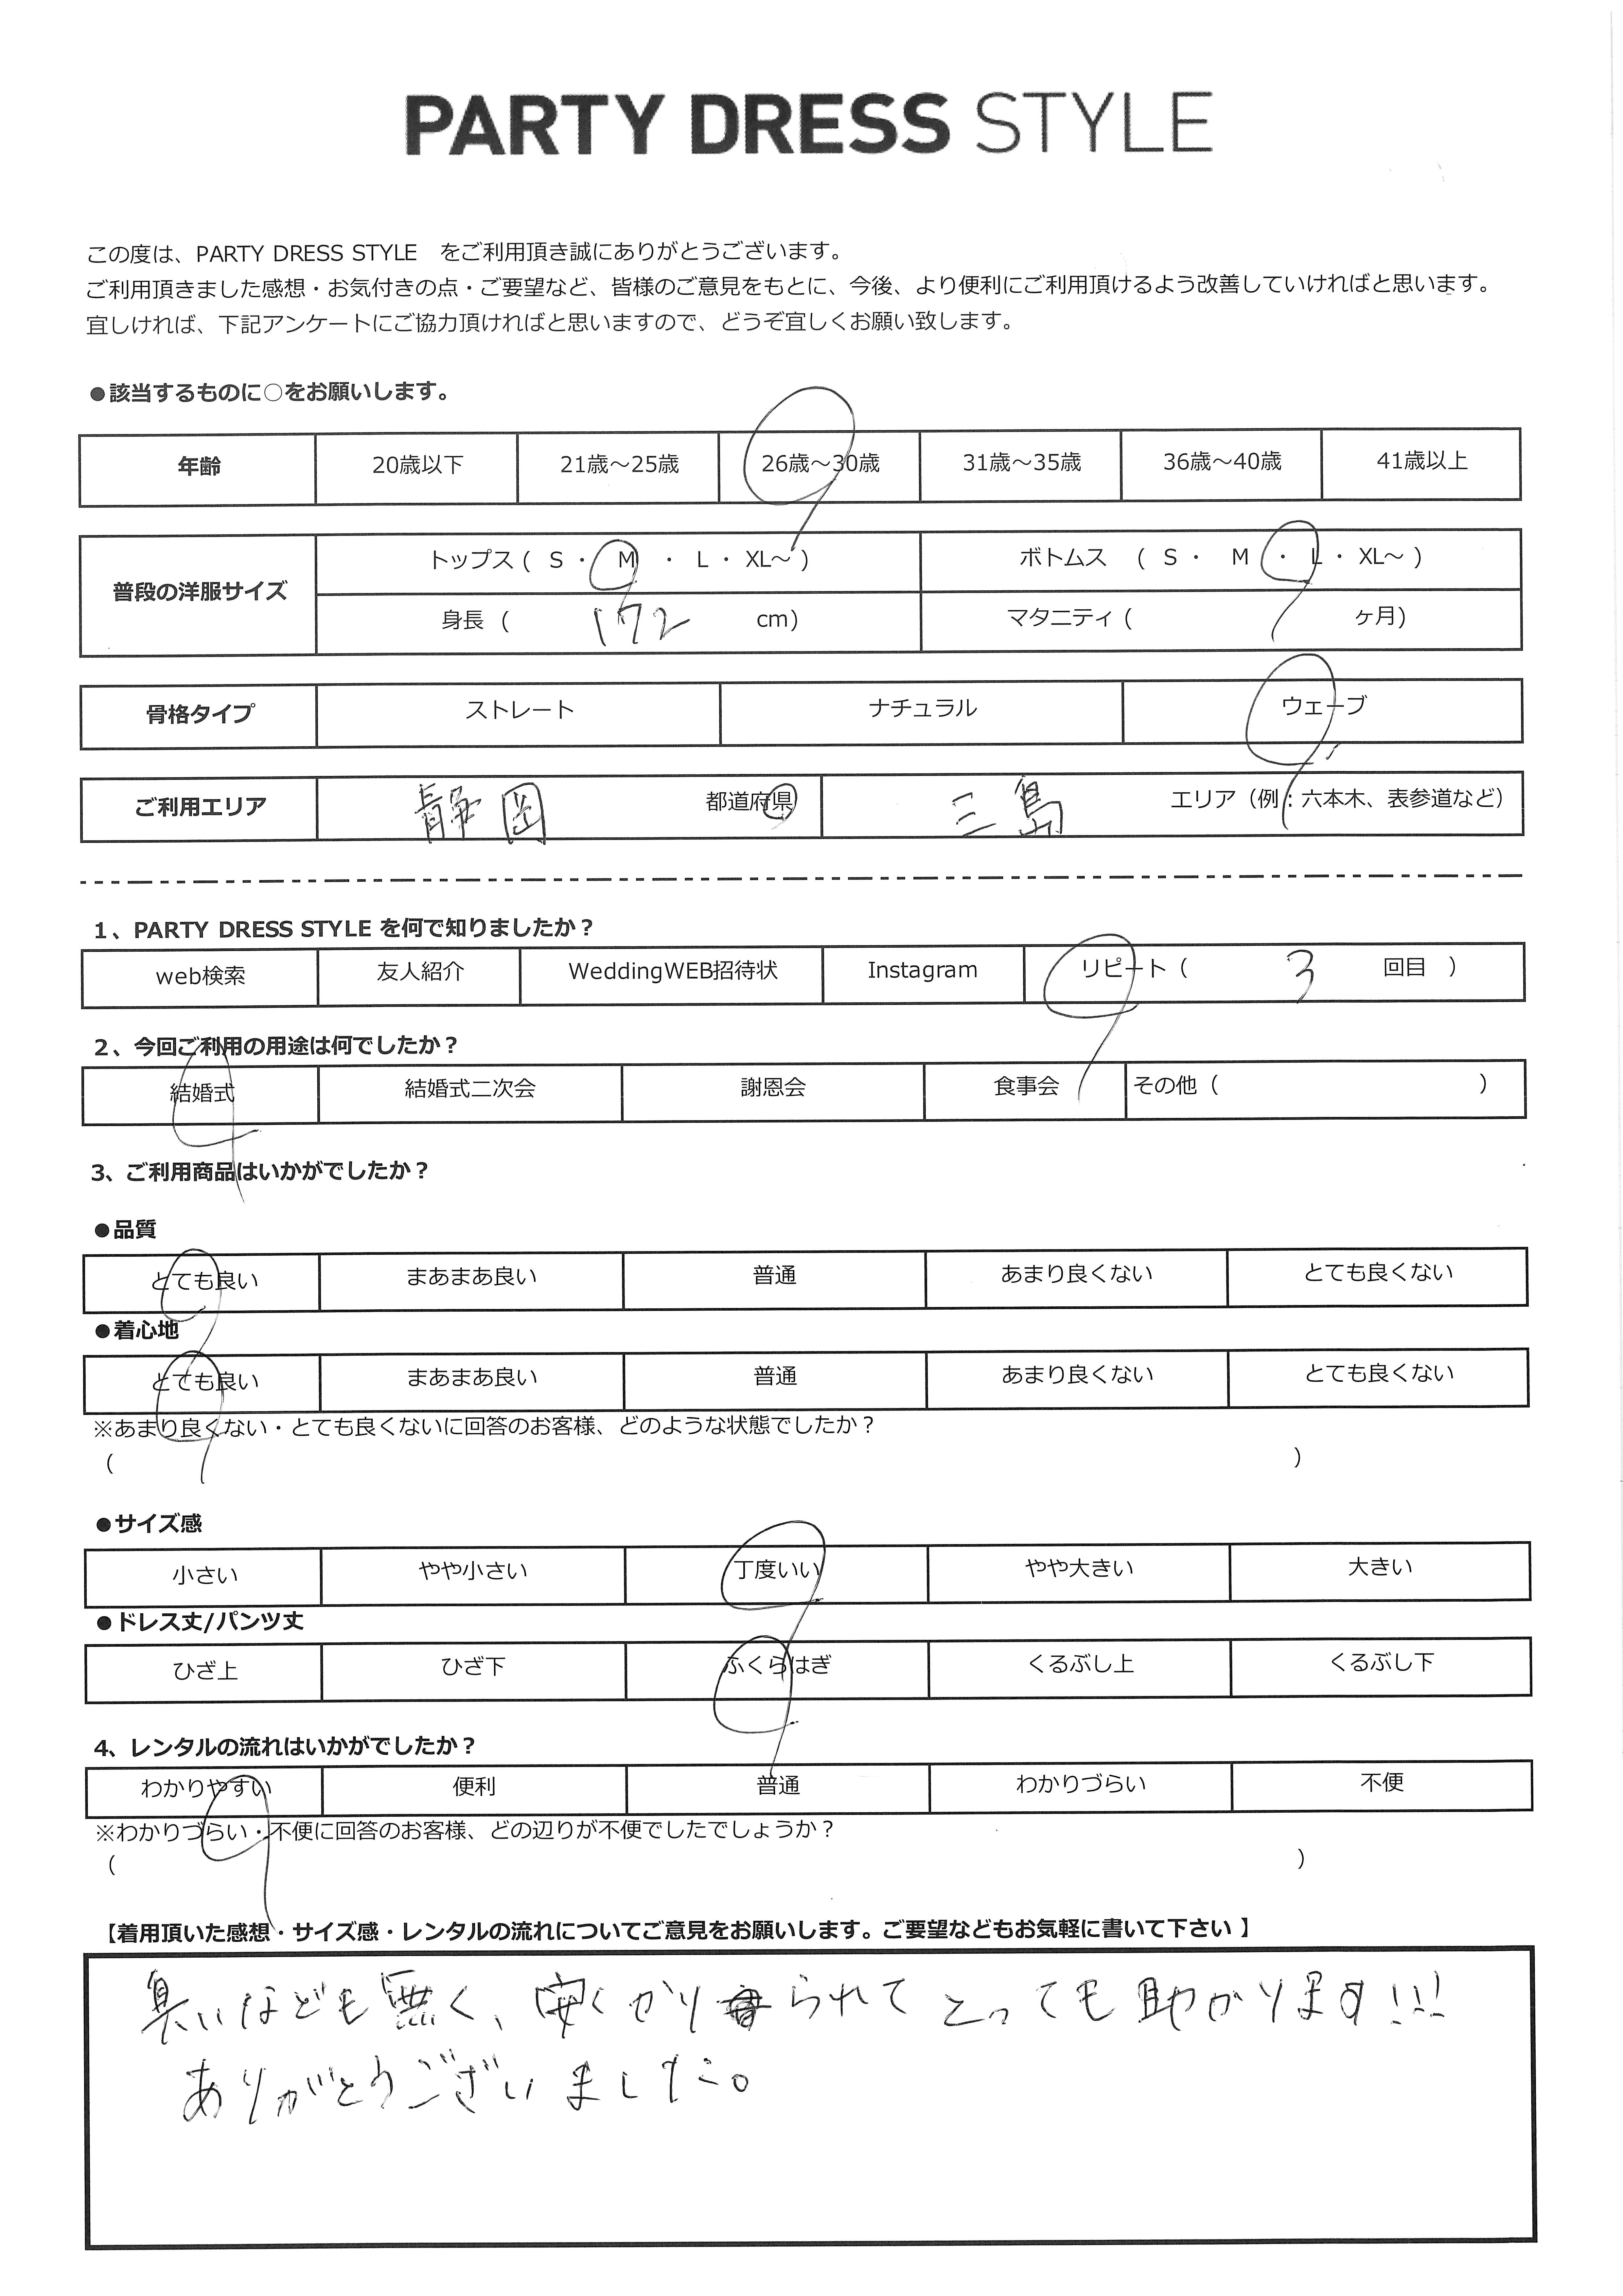 PARTY DRESS STYLE
この度は、PARTY DRESS STYLE　をご利用頂き誠にありがとうございます。
ご利用頂きました感想・お気付きの点・ご要望など、皆様のご意見をもとに、今後、より便利にご利用頂けるよう改善していければと思います。
宜しければ、下記アンケートにご協力頂ければと思いますので、どうぞ宜しくお願い致します。
●該当するものに○をお願いします。
年齢 20歳以下 21歳～25歳 26歳～30歳 31歳～35歳 36歳～40歳 41歳以上
普段の洋服サイズ トップス ( S ・ M ・ L ・ XL～ ) ボトムス ( S ・ M ・ L ・ XL～ )
身長 ( 172 cm) マタニティ ( ヶ月)
骨格タイプ ストレート ナチュラル ウェーブ
ご利用エリア 静岡 都道府県 三島 エリア（例：六本木、表参道など）
1、PARTY DRESS STYLE を何で知りましたか？
web検索 友人紹介 WeddingWEB招待状 Instagram リピート（ 3 回目 ）
2、今回ご利用の用途は何でしたか？
結婚式 結婚式二次会 謝恩会 食事会 その他（ ）
3、ご利用商品はいかがでしたか？
●品質
とても良い まあまあ良い 普通 あまり良くない とても良くない
●着心地
とても良い まあまあ良い 普通 あまり良くない とても良くない
※あまり良くない・とても良くないに回答のお客様、どのような状態でしたか？
（ ）
●サイズ感
小さい やや小さい 丁度いい やや大きい 大きい
●ドレス丈/パンツ丈
ひざ上 ひざ下 ふくらはぎ くるぶし上 くるぶし下
4、レンタルの流れはいかがでしたか？
わかりやすい 便利 普通 わかりづらい 不便
※わかりづらい・不便に回答のお客様、どの辺りが不便でしたでしょうか？
（ ）
【着用頂いた感想・サイズ感・レンタルの流れについてご意見をお願いします。ご要望などもお気軽に書いて下さい 】
臭いなども無く、安くかりられてとっても助かります!!!
ありがとうございました。